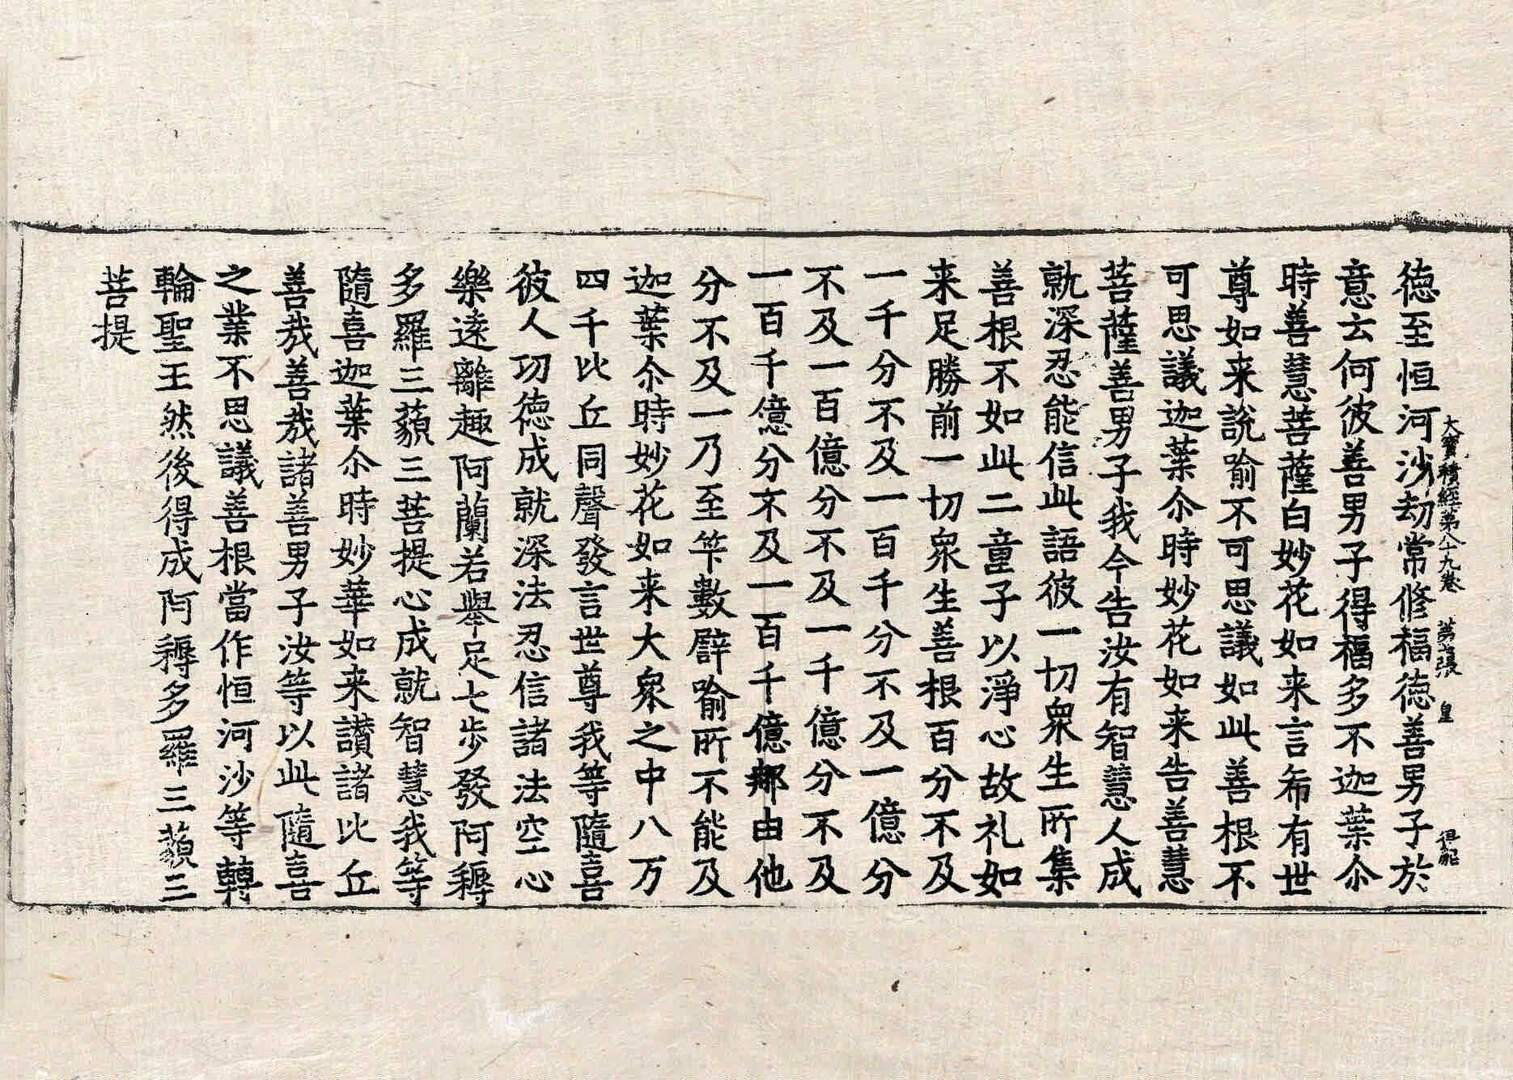 大寶積經第八十九卷 第 張 皇
德至恒河沙劫常修福德善男子於
意云何彼善男子得福多不迦葉尒
時善慧菩薩白妙花如来言希有世
尊如来說喻不可思議如此善根不
可思議迦葉尒時妙花如来告善慧
菩薩善男子我今告汝有智慧人成
就深忍能信此語彼一切衆生所集
善根不如此二童子以淨心故礼如
来足勝前一切衆生善根百分不及
一千分不及一百千分不及一億分
不及一百億分不及一千億分不及
一百千億分不及一百千億那由他
分不及一乃至筭數譬喻所不能及
迦葉尒時妙花如来大衆之中八万
四千比丘同聲發言世尊我等隨喜
彼人功德成就深法忍信諸法空心
樂遠離趣阿蘭若舉足七步發阿耨
多羅三藐三菩提心成就智慧我等
隨喜迦葉尒時妙華如来讃諸比丘
善哉善哉諸善男子汝等以此隨喜
之業不思議善根當作恒河沙等轉
輪聖王然後得成阿耨多羅三藐三
菩提